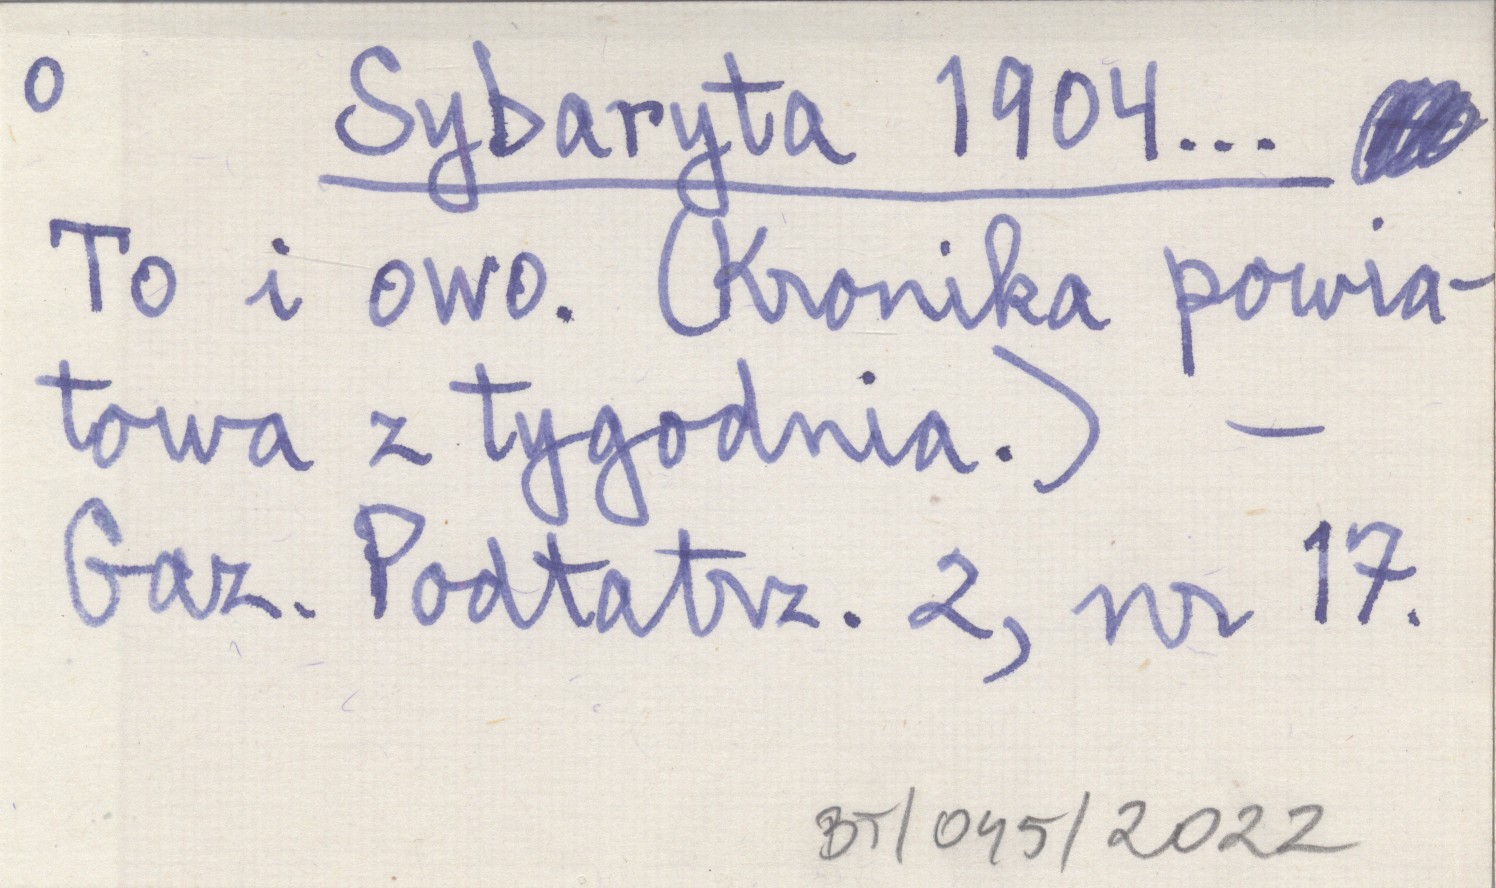 o Sybaryta 1904...
To i owo. (Kronika powia-
towa z tygodnia.) –
Gaz. Podtatrz. 2, nr 17.
BT/045/2022